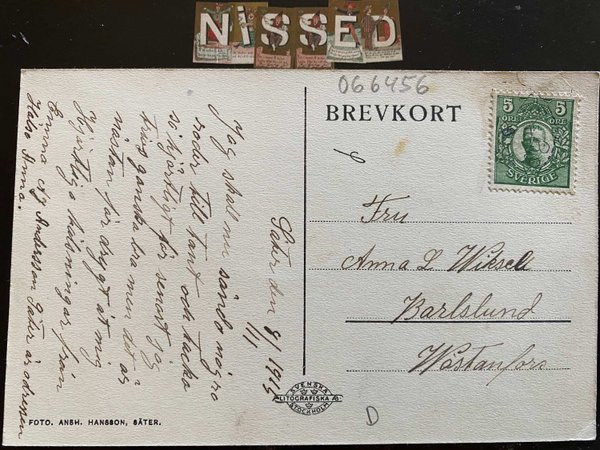 NiSSED
066456
BREVKORT
5 5
ÖRE ÖRE
SVERIGE
Säter den 9/1 1915
Jag skall nu sända några
rader till tant och tacka
så hjärtligt för senast jag
trivs ganska bra men det är
nästan för drygt åt mig
Hjärtliga hälsningar från
Emma
Andersson Säter är adressen
Hälsa Anna.
Fru
Anna L Wiksell
Karlslund
Västanfors
SVENSKA
LITOGRAFISKA AB.
STOCKHOLM
D
FOTO. ANSH. HANSSON, SÄTER.